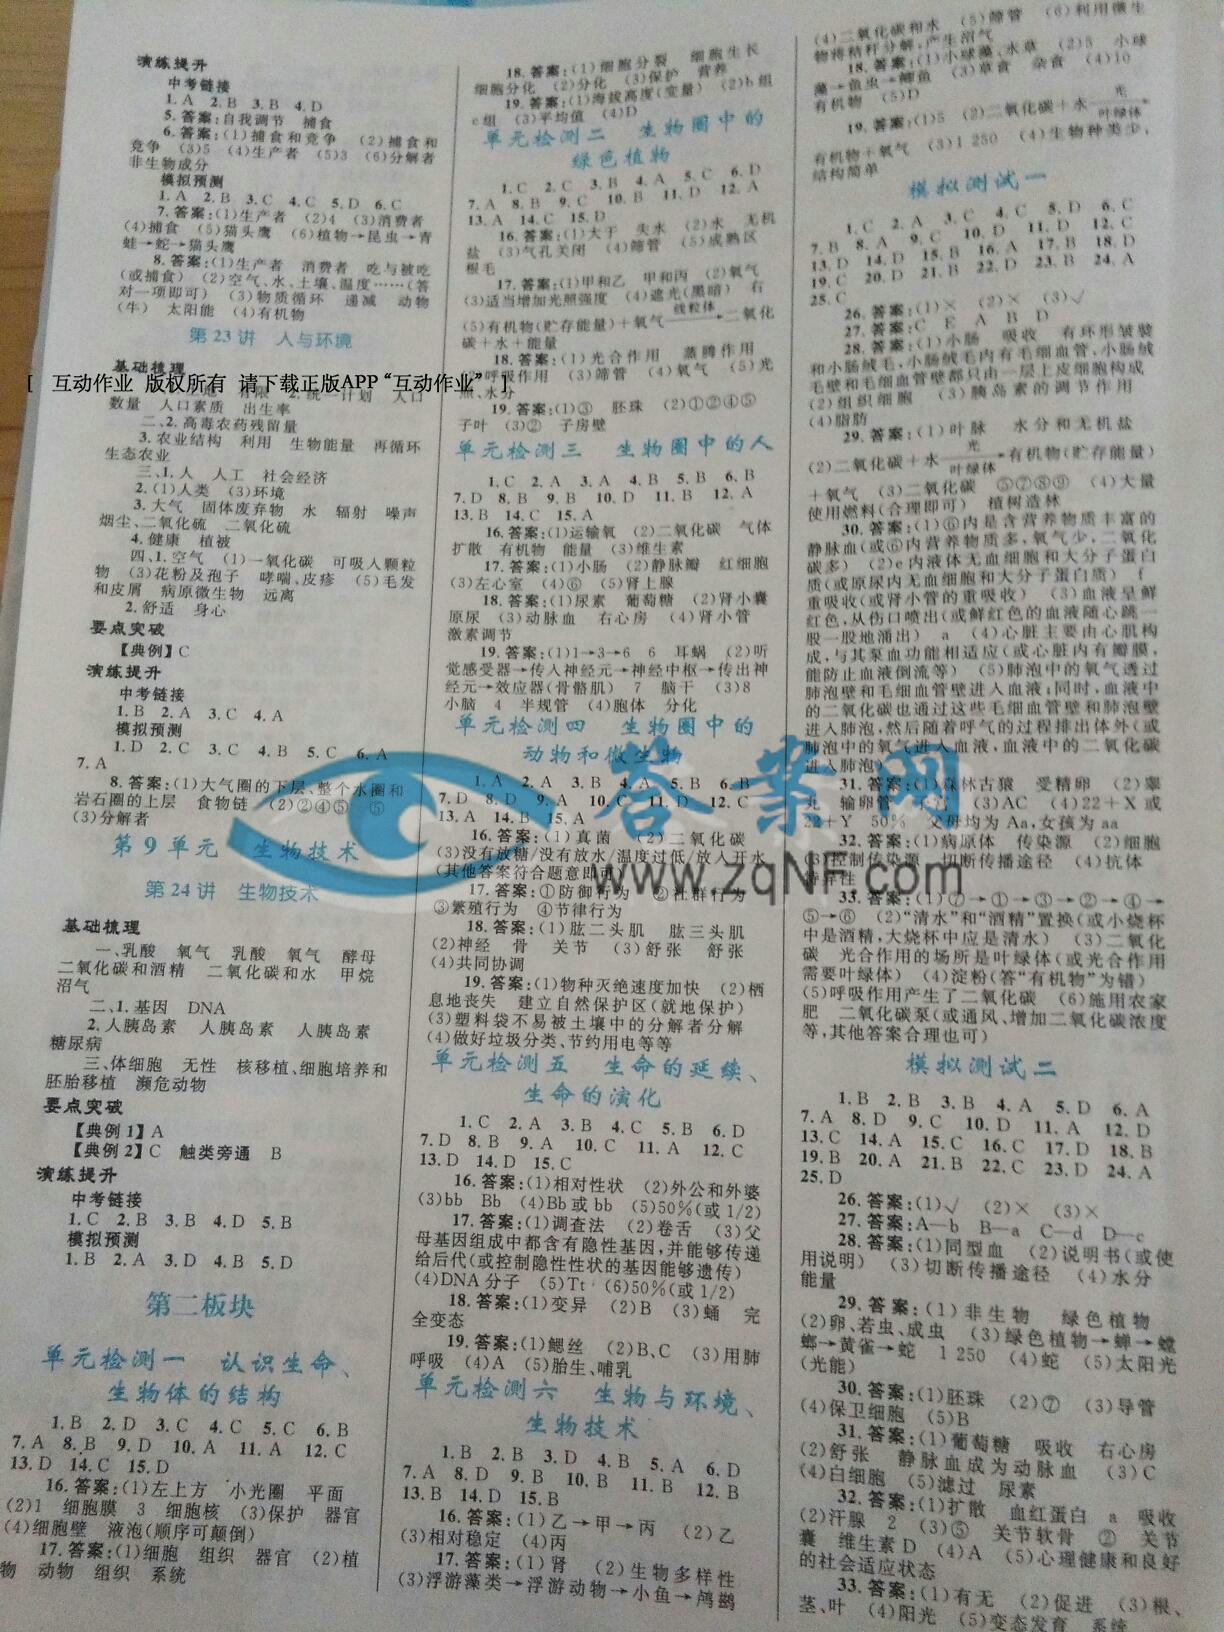 演练提升
中考链接
1. A 2. B 3. B 4. D
5. 答案:自我调节 捕食
6. 答案:(1)捕食和竞争 (2)捕食和
竞争 (3)5 (4)生产者 (5)3 (6)分解者
非生物成分
模拟预测
1. A 2. B 3. C 4. C 5. D 6. C
7. 答案:(1)生产者 (2)4 (3)消费者
(4)捕食 (5)猫头鹰 (6)植物→昆虫→青
蛙→蛇→猫头鹰
8. 答案:(1)生产者 消费者 吃与被吃
(或捕食) (2)空气、水、土壤、温度……(答
对一项即可) (3)物质循环 递减 动物
(牛) 太阳能 (4)有机物
第 23 讲 人与环境
基础梳理
[ 互动作业 版权所有 请下载正版APP“互动作业” ]
有限 2. 统一计划 人口
数量 人口素质 出生率
二、2. 高毒农药残留量
3. 农业结构 利用 生物能量 再循环
生态农业
三、1. 人 人工 社会经济
2. (1)人类 (3)环境
3. 大气 固体废弃物 水 辐射 噪声
烟尘、二氧化硫 二氧化硫
4. 健康 植被
四、1. 空气 (1)一氧化碳 可吸入颗粒
物 (3)花粉及孢子 哮喘、皮疹 (5)毛发
和皮屑 病原微生物 远离
2. 舒适 身心
要点突破
【典例】C
演练提升
中考链接
1. B 2. A 3. C 4. A
模拟预测
1. D 2. C 3. C 4. B 5. C 6. A
7. A
8. 答案:(1)大气圈的下层、整个水圈和
岩石圈的上层 食物链 (2)②④⑤ ⑤
(3)分解者
第 9 单元 生物技术
第 24 讲 生物技术
基础梳理
一、乳酸 氧气 乳酸 氧气 酵母
二氧化碳和酒精 二氧化碳和水 甲烷
沼气
二、1. 基因 DNA
2. 人胰岛素 人胰岛素 人胰岛素
糖尿病
三、体细胞 无性 核移植、细胞培养和
胚胎移植 濒危动物
要点突破
【典例 1】A
【典例 2】C 触类旁通 B
演练提升
中考链接
1. C 2. B 3. B 4. D 5. B
模拟预测
1. B 2. A 3. D 4. B 5. D
第二板块
单元检测一 认识生命、
生物体的结构
1. B 2. D 3. C 4. C 5. C 6. B
7. A 8. B 9. D 10. A 11. A 12. C
13. D 14. C 15. D
16. 答案:(1)左上方 小光圈 平面
(2)1 细胞膜 3 细胞核 (3)保护 器官
(4)细胞壁 液泡(顺序可颠倒)
17. 答案:(1)细胞 组织 器官 (2)植
物 动物 组织 系统
18. 答案:(1)细胞分裂 细胞生长
细胞分化 (2)分化 (3)保护 营养
19. 答案:(1)海拔高度(变量) (2)b 组
c 组 (3)平均值 (4)D
单元检测二 生物圈中的
绿色植物
1. C 2. C 3. B 4. A 5. C 6. D
7. A 8. B 9. C 10. B 11. D 12. A
13. A 14. C 15. D
16. 答案:(1)大于 失水 (2)水 无机
盐 (3)气孔关闭 (4)筛管 (5)成熟区
根毛
17. 答案:(1)甲和乙 甲和丙 (2)氧气
(3)适当增加光照强度 (4)遮光(黑暗) 右
(5)有机物(贮存能量)+氧气 线粒体→二氧化
碳+水+能量
18. 答案:(1)光合作用 蒸腾作用
(2)呼吸作用 (3)筛管 (4)氧气 (5)光
照、水分
19. 答案:(1)③ 胚珠 (2)①②④⑤
子叶 (3)② 子房壁
单元检测三 生物圈中的人
1. C 2. A 3. A 4. B 5. B 6. B
7. D 8. B 9. B 10. D 11. B 12. A
13. B 14. C 15. A
16. 答案:(1)运输氧 (2)二氧化碳 气体
扩散 有机物 能量 (3)维生素
17. 答案:(1)小肠 (2)静脉瓣 红细胞
(3)左心室 (4)⑥ (5)肾上腺
18. 答案:(1)尿素 葡萄糖 (2)肾小囊
原尿 (3)动脉血 右心房 (4)肾小管
激素调节
19. 答案:(1)1→3→6 6 耳蜗 (2)听
觉感受器→传入神经元→神经中枢→传出神
经元→效应器(骨骼肌) 7 脑干 (3)8
小脑 4 半规管 (4)胞体 分化
单元检测四 生物圈中的
动物和微生物
1. A 2. A 3. B 4. A 5. B 6. B
7. D 8. D 9. A 10. C 11. D 12. C
13. A 14. B 15. A
16. 答案:(1)真菌 (2)二氧化碳
(3)没有放糖/没有放水/温度过低/放入开水
(其他答案符合题意即可)
17. 答案:①防御行为 ②社群行为
③繁殖行为 ④节律行为
18. 答案:(1)肱二头肌 肱三头肌
(2)神经 骨 关节 (3)舒张 舒张
(4)共同协调
19. 答案:(1)物种灭绝速度加快 (2)栖
息地丧失 建立自然保护区(就地保护)
(3)塑料袋不易被土壤中的分解者分解
(4)做好垃圾分类、节约用电等等
单元检测五 生命的延续、
生命的演化
1. C 2. A 3. B 4. C 5. B 6. D
7. D 8. B 9. A 10. C 11. A 12. C
13. D 14. D 15. C
16. 答案:(1)相对性状 (2)外公和外婆
(3)bb Bb (4)Bb 或 bb (5)50%(或 1/2)
17. 答案:(1)调查法 (2)卷舌 (3)父
母基因组成中都含有隐性基因,并能够传递
给后代(或控制隐性性状的基因能够遗传)
(4)DNA 分子 (5)Tt (6)50%(或 1/2)
18. 答案:(1)变异 (2)B (3)蛹 完
全变态
19. 答案:(1)鳃丝 (2)B、C (3)用肺
呼吸 (4)A (5)胎生、哺乳
单元检测六 生物与环境、
生物技术
1. B 2. B 3. D 4. B 5. A 6. D
7. A 8. D 9. B 10. B 11. B 12. B
13. B 14. D 15. B
16. 答案:(1)乙→甲→丙 (2)乙
(3)相对稳定 (4)丙
17. 答案:(1)肾 (2)生物多样性
(3)浮游藻类→浮游动物→小鱼→鸬鹚
(4)二氧化碳和水 (5)筛管 (6)利用微生
物将秸秆分解,产生沼气
18. 答案:(1)小球藻、水草 (2)5 小球
藻→鱼虫→鲫鱼 (3)草食 杂食 (4)10
有机物 (5)D
19. 答案:(1)5 (2)二氧化碳+水 光→叶绿体
有机物+氧气 (3)1 250 (4)生物种类少,
结构简单
模拟测试一
1. C 2. A 3. C 4. C 5. D 6. C
7. B 8. A 9. C 10. D 11. D 12. C
13. D 14. D 15. B 16. A 17. B 18. D
19. C 20. D 21. B 22. D 23. B 24. A
25. C
26. 答案:(1)× (2)× (3)√
27. 答案:C E A B D
28. 答案:(1)小肠 吸收 有环形皱襞
和小肠绒毛,小肠绒毛内有毛细血管,小肠绒
毛壁和毛细血管壁都只由一层上皮细胞构成
(2)组织细胞 (3)胰岛素的调节作用
(4)脂肪
29. 答案:(1)叶脉 水分和无机盐
(2)二氧化碳+水 光→叶绿体 有机物(贮存能量)
+氧气 (3)二氧化碳 ⑤⑦⑧⑨ (4)大量
使用燃料(合理即可) 植树造林
30. 答案:(1)⑥内是含营养物质丰富的
静脉血(或⑥内营养物质多,氧气少,二氧化
碳多) (2)e 内液体无血细胞和大分子蛋白
质(或原尿内无血细胞和大分子蛋白质) f
重吸收(或肾小管的重吸收) (3)血液呈鲜
红色,从伤口喷出(或鲜红色的血液随心跳一
股一股地涌出) a (4)心脏主要由心肌构
成,与其泵血功能相适应(或心脏内有瓣膜,
能防止血液倒流等) (5)肺泡中的氧气透过
肺泡壁和毛细血管壁进入血液;同时,血液中
的二氧化碳也通过这些毛细血管壁和肺泡壁
进入肺泡,然后随着呼气的过程排出体外(或
肺泡中的氧气进入血液,血液中的二氧化碳
进入肺泡)
31. 答案:(1)森林古猿 受精卵 (2)睾
丸 输卵管 (3)AC (4)22+X 或
22+Y 50% 父母均为 Aa,女孩为 aa
32. 答案:(1)病原体 传染源 (2)细胞
(3)控制传染源 切断传播途径 (4)抗体
特异性
33. 答案:(1)⑦→①→③→②→④→
⑤→⑥ (2)“清水”和“酒精”置换(或小烧杯
中是酒精,大烧杯中应是清水) (3)二氧化
碳 光合作用的场所是叶绿体(或光合作用
需要叶绿体) (4)淀粉(答“有机物”为错)
(5)呼吸作用产生了二氧化碳 (6)施用农家
肥 二氧化碳泵(或通风、增加二氧化碳浓度
等,其他答案合理也可)
模拟测试二
1. B 2. B 3. B 4. A 5. D 6. A
7. A 8. D 9. C 10. D 11. A 12. D
13. C 14. A 15. C 16. C 17. D 18. B
19. B 20. A 21. B 22. C 23. D 24. A
25. D
26. 答案:(1)√ (2)× (3)×
27. 答案:A—b B—a C—d D—c
28. 答案:(1)同型血 (2)说明书(或使
用说明) (3)切断传播途径 (4)水分
能量
29. 答案:(1)非生物 绿色植物
(2)卵、若虫、成虫 (3)绿色植物→蝉→螳
螂→黄雀→蛇 1 250 (4)蛇 (5)太阳光
(光能)
30. 答案:(1)胚珠 (2)⑦ (3)导管
(4)保卫细胞 (5)B
31. 答案:(1)葡萄糖 吸收 右心房
(2)舒张 静脉血成为动脉血 (3)C
(4)白细胞 (5)滤过 尿素
32. 答案:(1)扩散 血红蛋白 a 吸收
(2)汗腺 2 (3)⑤ 关节软骨 ② 关节
囊 维生素 D (4)A (5)心理健康和良好
的社会适应状态
33. 答案:(1)有无 (2)促进 (3)根、
茎、叶 (4)阳光 (5)变态发育 系统
答案网
www.zqNF.com